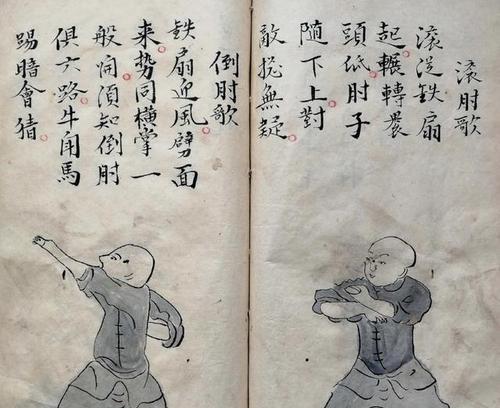 滾肘歌
滾鉄扇
起輾轉
頭低肘子
隨下上對
敵無疑
倒肘歌
鉄扇迎風劈面
来势同橫掌一
般開須知倒肘
俱六路牛角馬
踢暗會猜